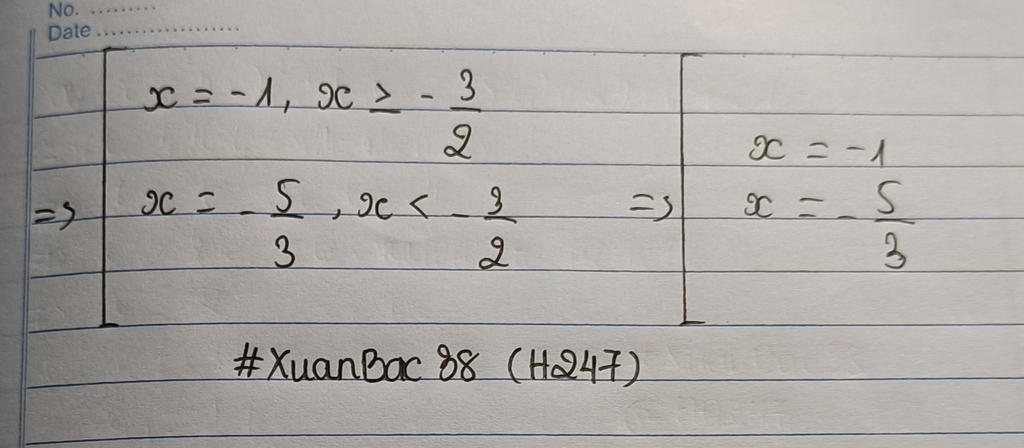 No. .........
Date ...................
x = -1, x ≥ - 3/2
x = -1
=> x = - 5/3, x < - 3/2 => x = - 5/3
#XuanBac 88 (H247)